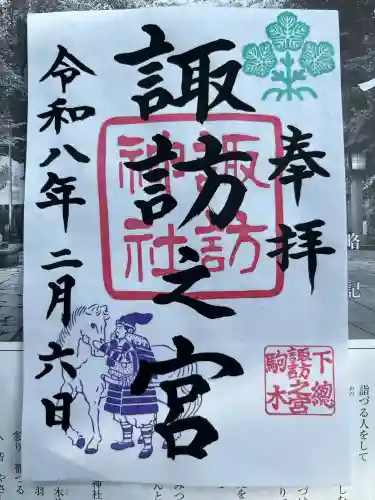 奉拝
諏訪之宮
令和八年二月六日
諏訪
神社
下總
諏訪之宮
駒木
略記
詣づる人をして
おの
神社